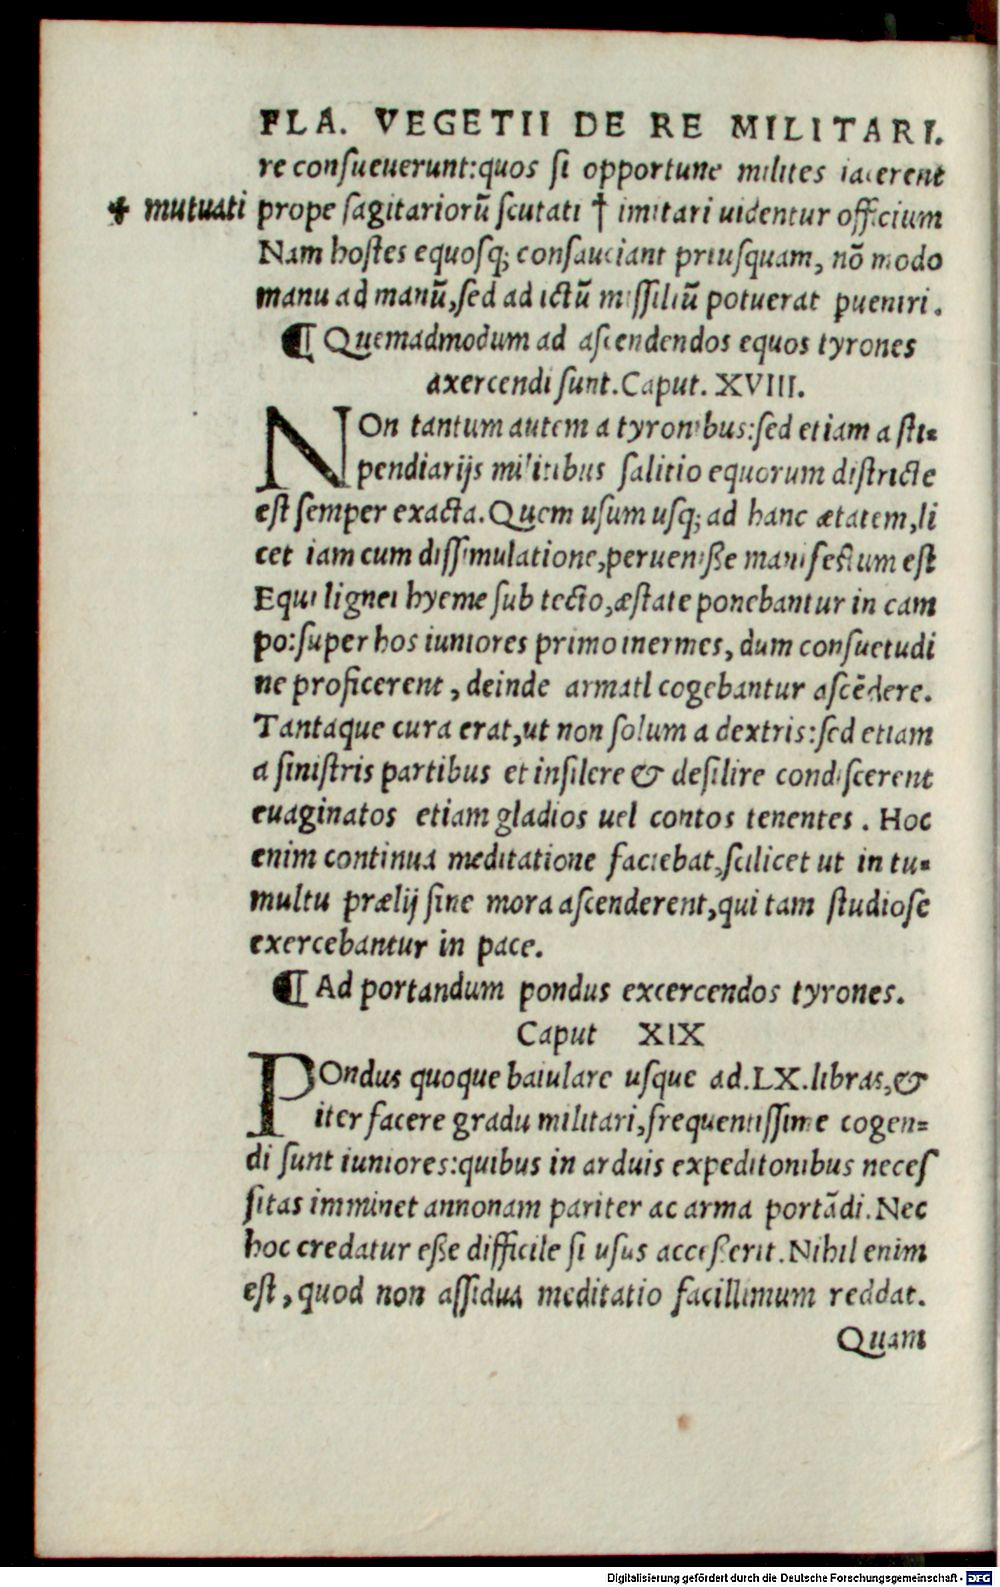 FLA. VEGETII DE RE MILITARI.
re consueuerunt:quos si opportune milites iacerent
✤ mutuati prope sagitariorū scutati † imitari uidentur officium
Nam hostes equosq; consauciant priusquam, nō modo
manu ad manū,sed ad ictū missiliū potuerat pueniri.
¶ Quemadmodum ad ascendendos equos tyrones
axercendi sunt.Caput. XVIII.
NOn tantum autem a tyronibus:sed etiam a sti=
pendiarijs militibus salitio equorum districte
est semper exacta.Quem usum usq; ad hanc ætatem,li
cet iam cum dissimulatione,peruenisse manifestum est
Equi lignei hyeme sub tecto,æstate ponebantur in cam
po:super hos iuniores primo inermes, dum consuetudi
ne proficerent, deinde armatl cogebantur ascēdere.
Tantaque cura erat,ut non solum a dextris:sed etiam
a sinistris partibus et insilere & desilire condiscerent
euaginatos etiam gladios uel contos tenentes. Hoc
enim continua meditatione faciebat,scilicet ut in tu=
multu prælij sine mora ascenderent,qui tam studiose
exercebantur in pace.
¶ Ad portandum pondus excercendos tyrones.
Caput XIX
POndus quoque baiulare usque ad.LX.libras,&
iter facere gradu militari,frequentissime cogen=
di sunt iuniores:quibus in arduis expeditonibus neces
sitas imminet annonam pariter ac arma portādi.Nec
hoc credatur esse difficile si usus accesserit.Nihil enim
est, quod non assidua meditatio facillimum reddat.
Quam
Digitalisierung gefördert durch die Deutsche Forschungsgemeinschaft - DFG